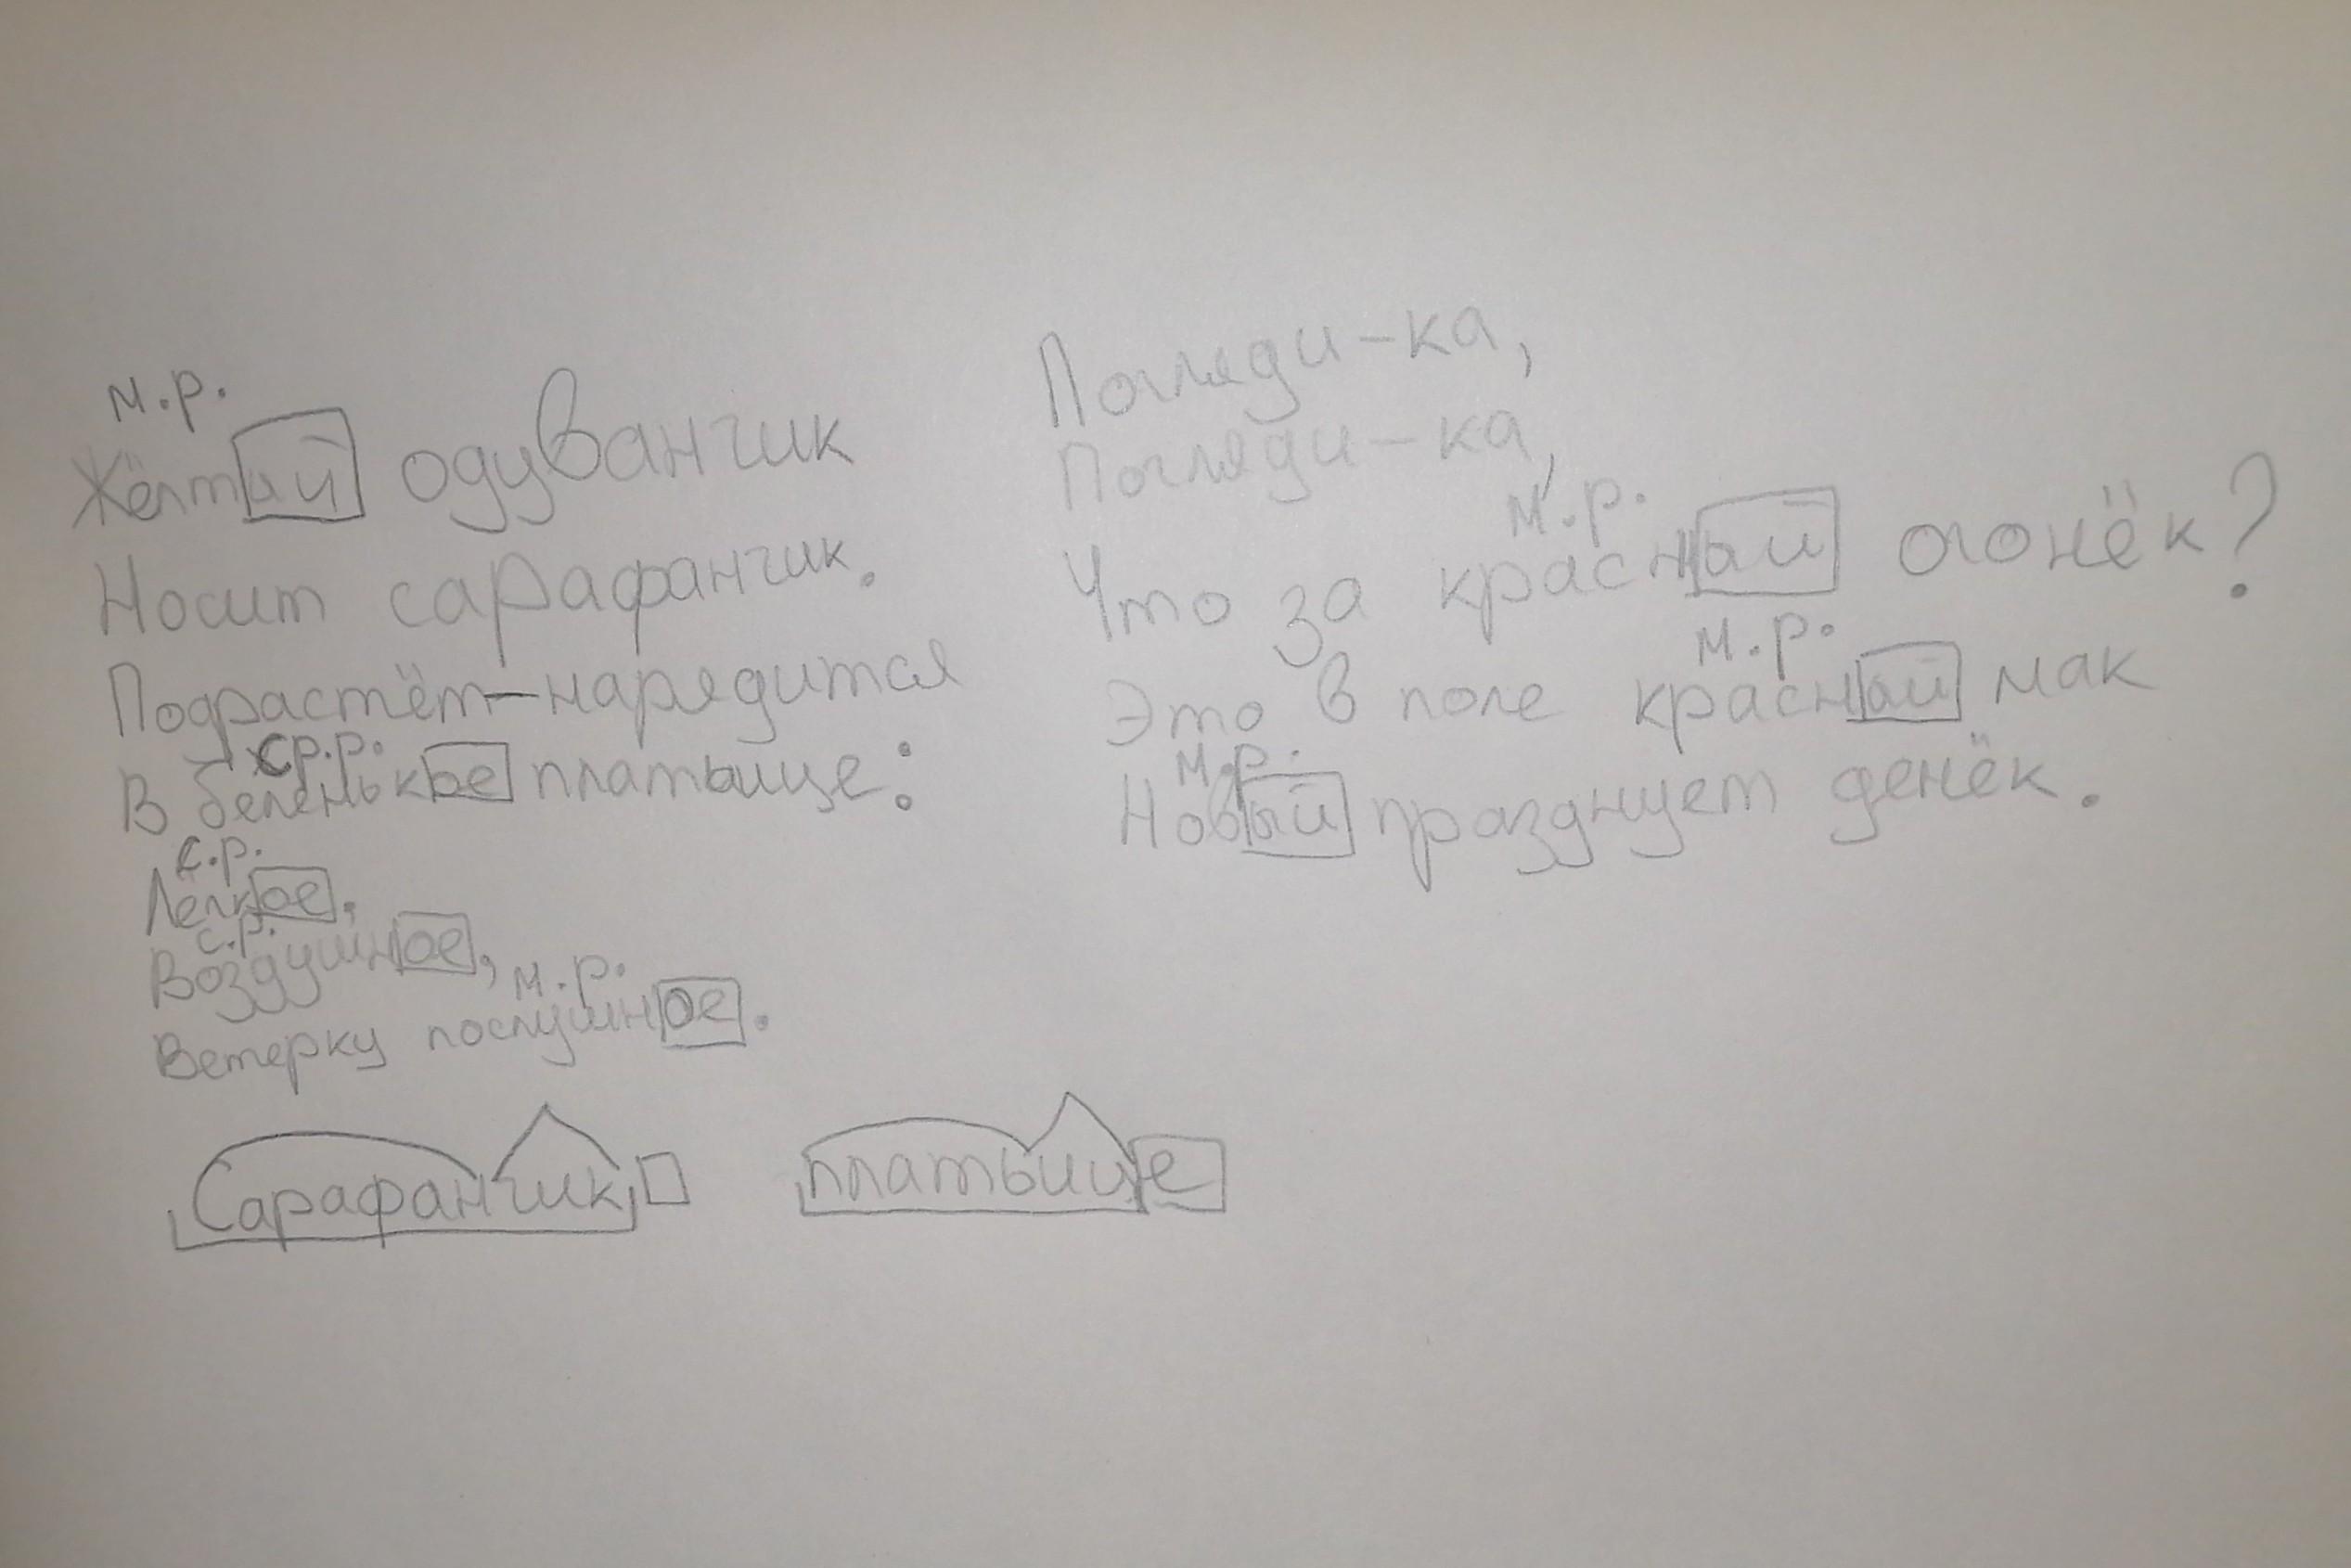 м.р.
Жёлтый одуванчик
Носит сарафанчик.
Подрастёт-нарядится
ср.р.
В беленькое платьице:
с.р.
Лёгкое,
с.р.
Воздушное,
м.р.
Ветерку послушное.
Сарафанчик платьице
Погляди-ка,
Погляди-ка,
м.р.
Что за красный огонёк?
м.р.
Это в поле красный мак
м.р.
Новый празднует денёк.